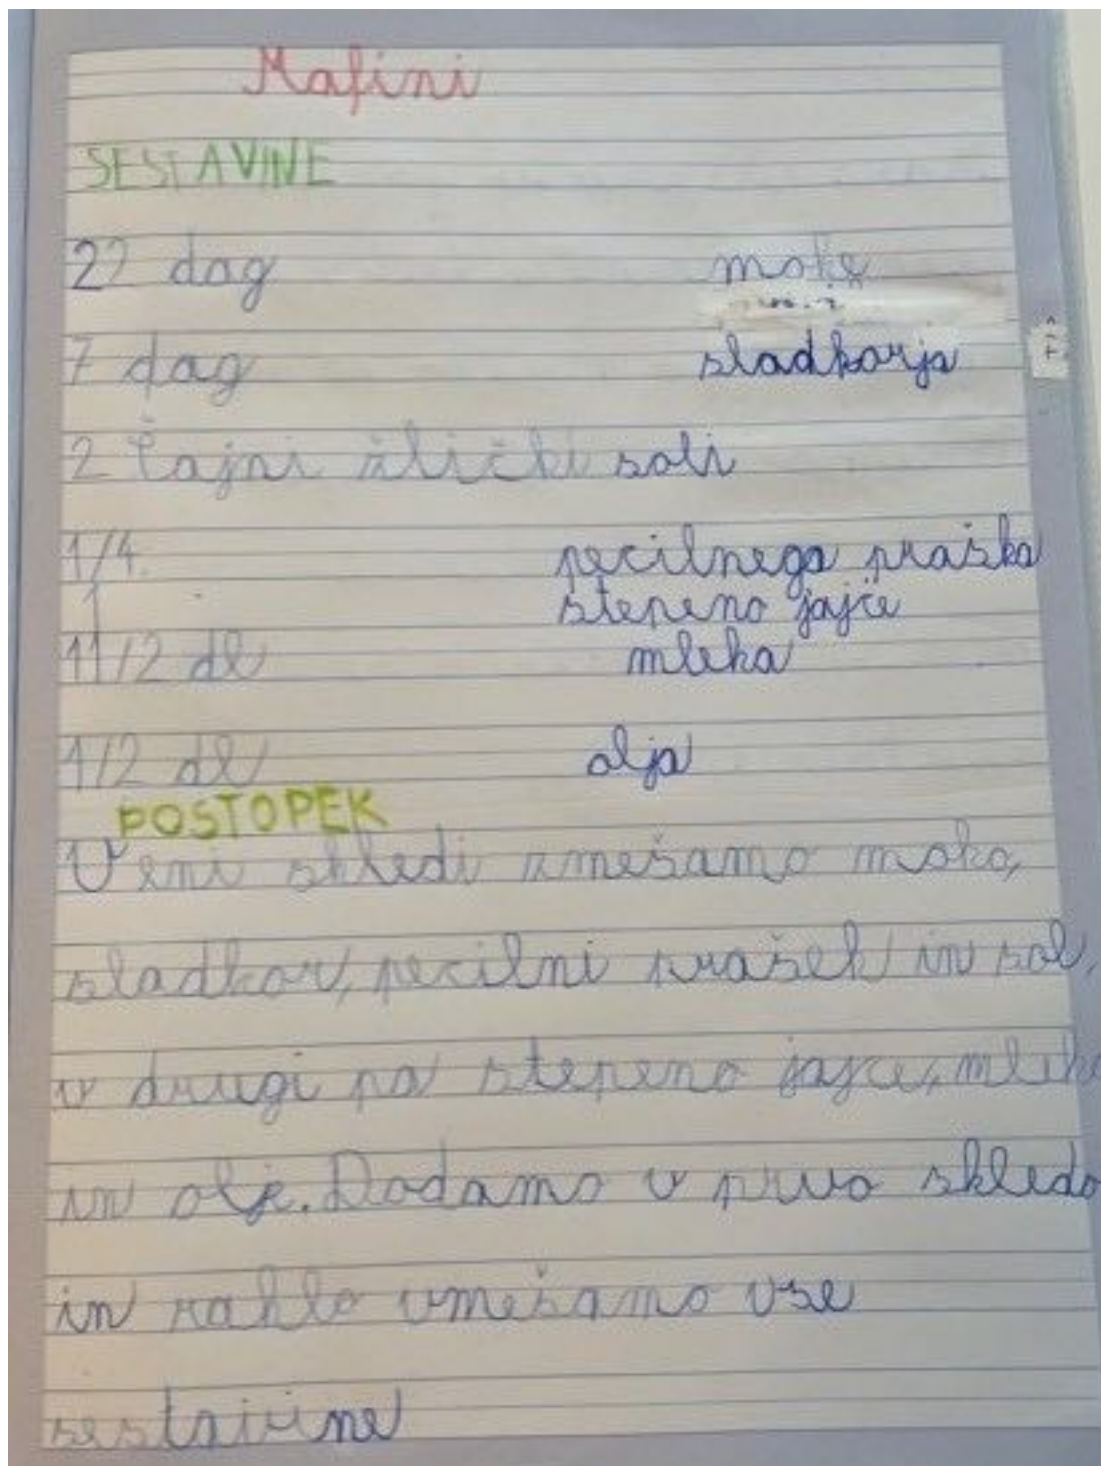 Mafini
SESTAVINE
22 dag moke
7 dag sladkorja
2 čajni žlički soli
1/4 pecilnega praška
1 stepeno jajce
1 1/2 dl mleka
1/2 dl olja
POSTOPEK
V eni skledi zmešamo moko,
sladkor, pecilni prašek in sol,
v drugi pa stepeno jajce, mleko
in olje. Dodamo v prvo skledo
in rahlo vmešamo vse
sestavine